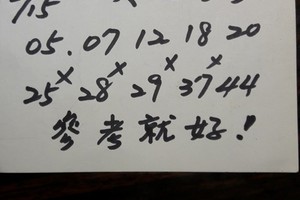 /15
05.07 12 18 20
25 × 28 × 29 × 37 × 44
參考就好!